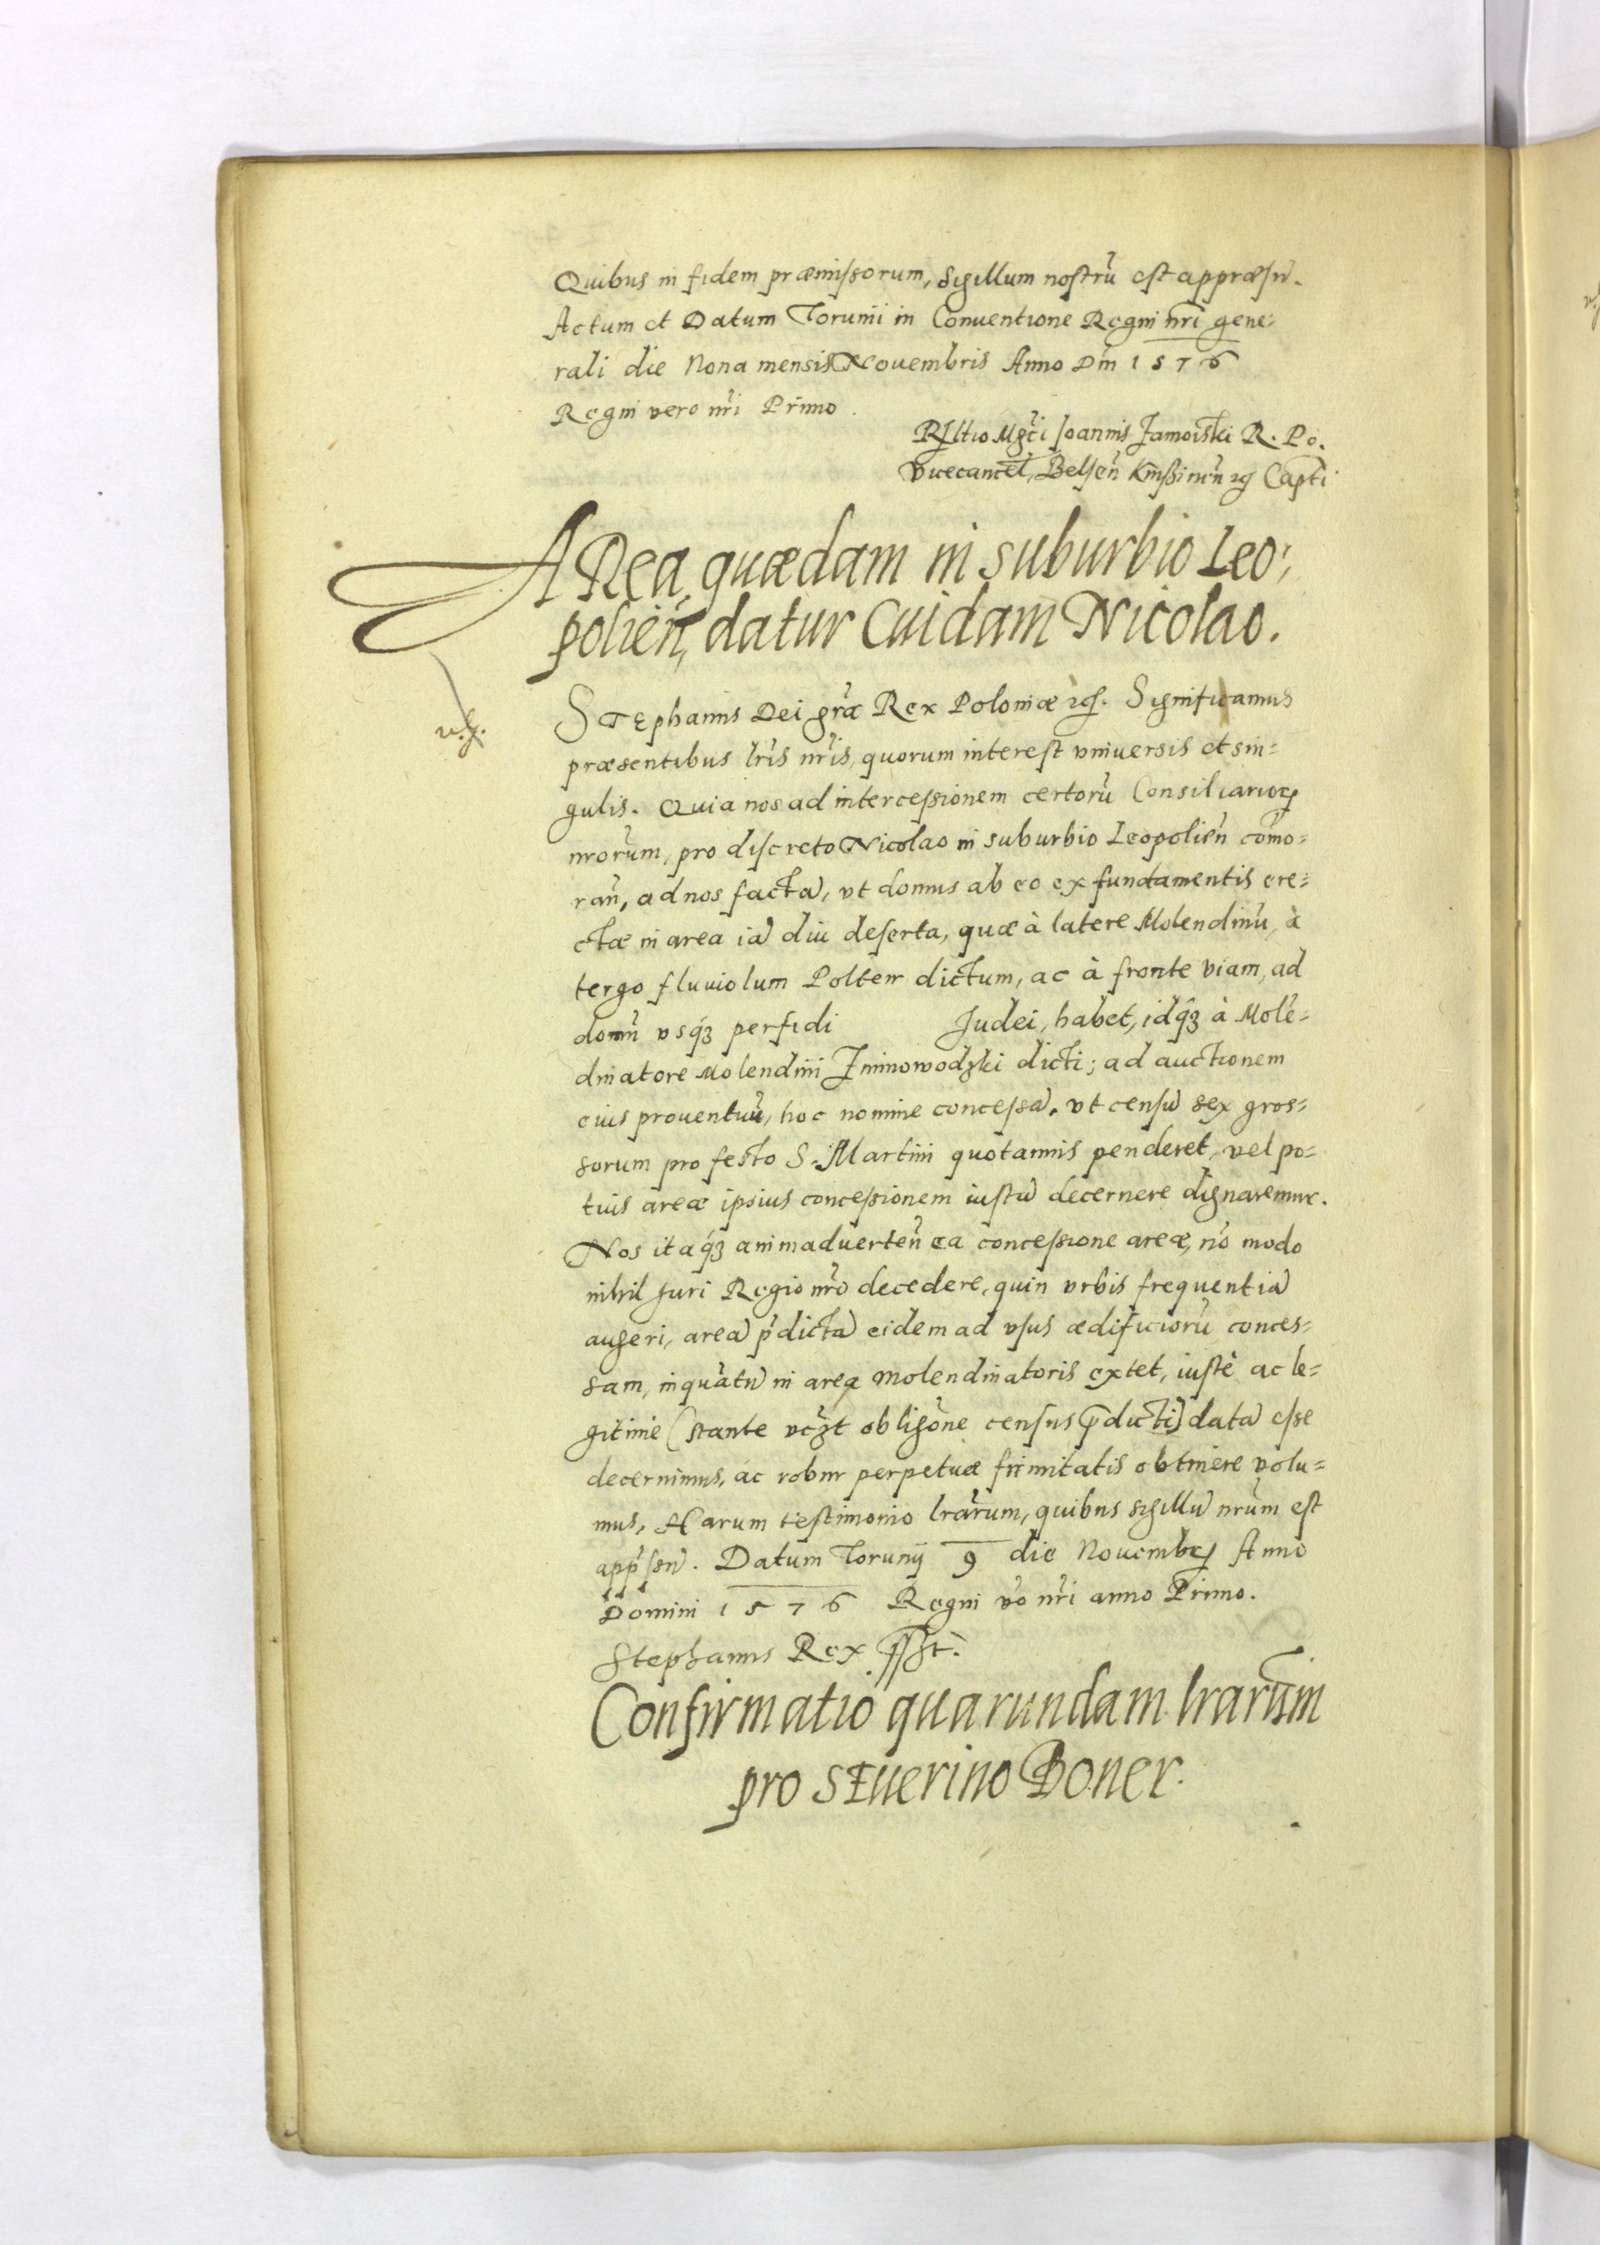 Quibus in fidem præmissorum, Sigillum nostrũ est appræsñ.
Actum et Datum Torunii in Conuentione Regni nr̃i gene=
rali die Nona mensis Nouembris Anno Dñi 1576
Regni vero nr̃i Primo.
Mgc̃i Joannis Zamoiski R. Po.
Vicecancel, Belsen̄ Capti
ARea quædam in suburbio Leo=
polien̄, datur Cuidam Nicolao.
v.g.
STEphanus Dei gr̃a Rex Poloniæ etc. Significamus
præsentibus lr̃is nr̃is, quorum interest vniuersis et sin=
gulis. Quia nos ad intercessionem certorũ Consiliarioꝝ
nr̃orum, pro discreto Nicolao in suburbio Leopolien̄ com̃o=
ran̄, ad nos factã, vt domus ab eo ex fundamentis ere=
ctæ in area iã diu deserta, quæ à latere Molendinũ, à
tergo fluuiolum Poltew dictum, ac à fronte viam, ad
domũ vsq́ꝫ perfidi Judei, habet, idq́ꝫ à Molẽ=
dinatore Molendini Zimnowodzki dicti; ad auctionem
eius prouentuũ, hoc nomine concessã. vt censũ sex gros=
sorum pro festo S. Martini quotannis penderet, vel po=
tius areæ ipsius concessionem iustã decernere dignaremur.
Nos itaq́ꝫ animaduerten̄ ea concessione areæ, nõ modo
nihil Juri Regio nr̃o decedere, quin vrbis frequentiã
augeri, areã p̃dictã eidem ad vsus ædificiorũ conces=
sam, inquãtũ in area Molendinatoris extet, iustè ac le=
gitimè (stante vcꝫt obligõne census p̃dicti) datã esse
decernimus, ac robur perpetuæ firmitatis obtinere volu=
mus, Harum testimonio lr̃arum, quibus sigillũ nr̃um est
app̃sen̄. Datum Torunij 9 die Nouembꝝ Anno
Domini 1576 Regni vo nr̃i anno Primo.
Stephanus Rex sst.
Confirmatio quarundam lrarũm
pro SEuerino Boner.